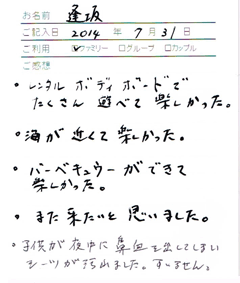 お名前 逢坂
ご記入日 2014 年 7 月 31 日
ご利用 ☑ファミリー □グループ □カップル
ご感想
・レンタル ボディボードで
たくさん 遊べて 楽しかった。
・海が近くて楽しかった。
・バーベキュウーができて
楽しかった。
・また来たいと思いました。
・子供が夜中に鼻血を出してしまい
シーツが汚れました。すいません。